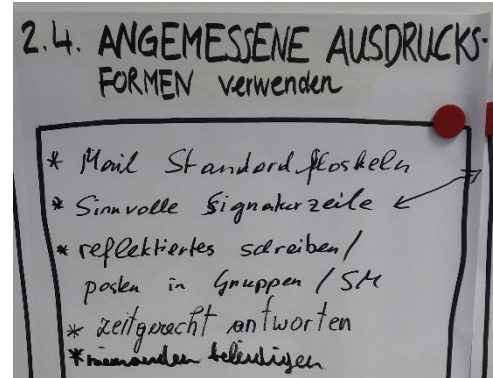 2.4. ANGEMESSENE AUSDRUCKS-
FORMEN verwenden
* Mail Standardfloskeln
* Sinnvolle Signaturzeile
* reflektiertes schreiben/
posten in Gruppen / SM
* zeitgerecht antworten
* niemanden beleidigen